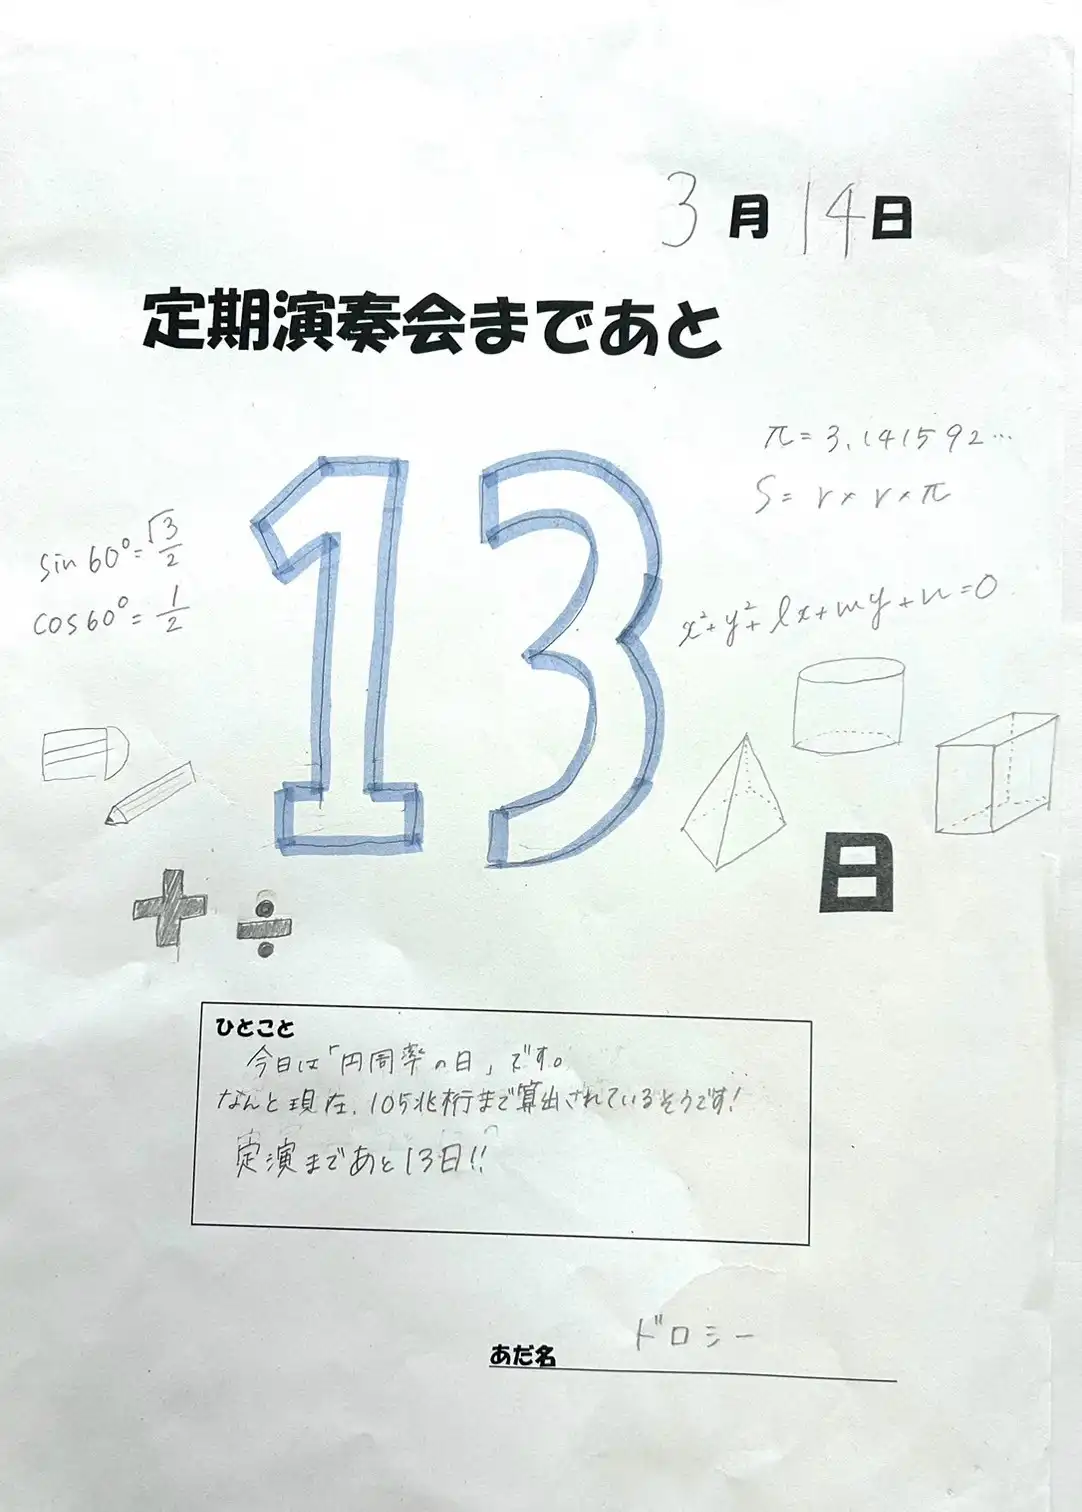 3月14日
定期演奏会まであと
π=3.141592…
S=r×r×π
sin60°=√3/2
cos60°=1/2
x²+y²+lx+my+n=0
13
日
+ ÷
ひとこと
今日は「円周率の日」です。
なんと現在、105兆桁まで算出されているそうです!
定演まであと13日!!
ドロシー
あだ名